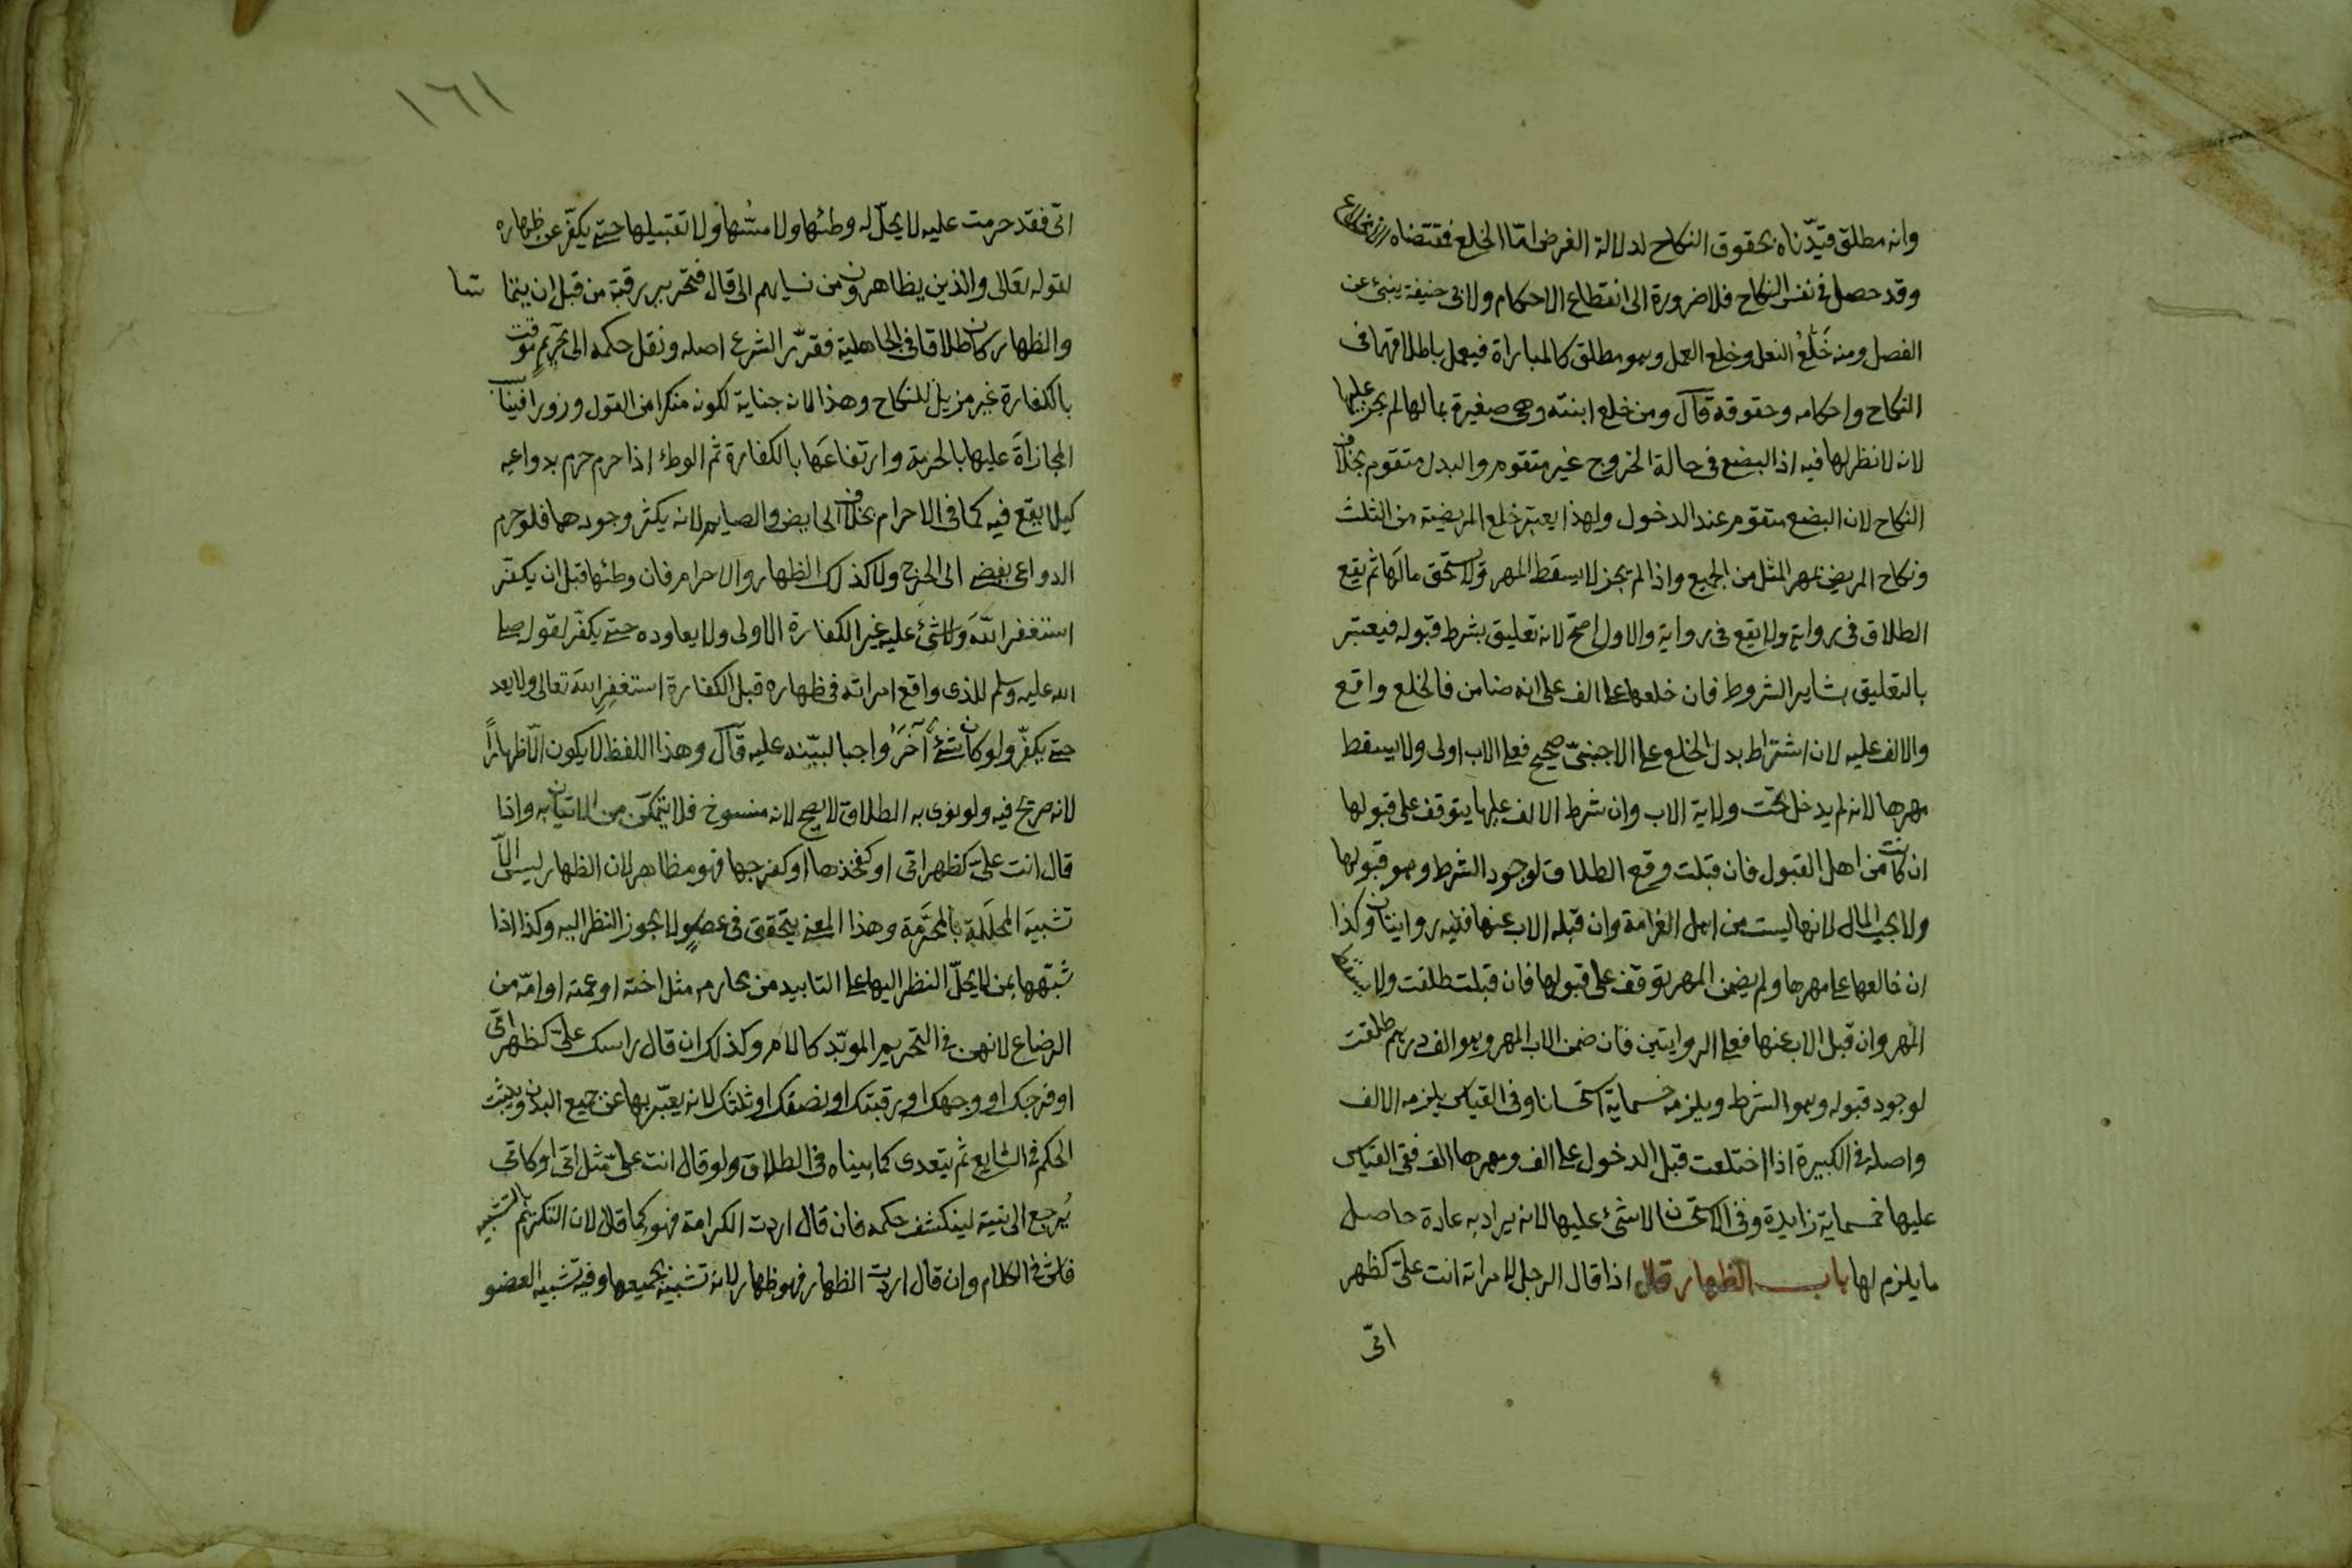 وانه مطلق قيّدناه بحقوق النكاح لدلالة الغرض امّا الخلع فمقتضاه الانخلاع
وقد حصل فى نفس النكاح فلا ضرورة الى انقطاع الاحكام ولابى حنيفة ينبئ عن
الفصل ومنه خَلْعُ النعل وخلع العمل وهو مطلق كالمباراة فيعمل باطلاقهما فى
النكاح واحكامه وحقوقه قال ومن خلع ابنته وهى صغيرة بمالها لم يجز عليها
لانه لا نظر لها فيه اذ البضع فى حالة الخروج غير متقوم والبدل متقوم بخلاف
النكاح لان البضع متقوم عند الدخول ولهذا يعتبر خلع المريضة من الثلث
ونكاح المريض بمهر المثل من الجميع واذا لم يجز لا يسقط المهر ولا يستحق مالَها ثم يقع
الطلاق فى رواية ولا يقع فى رواية والاول اصحّ لانه تعليق بشرط قبوله فيعتبر
بالتعليق بساير الشروط فان خلعها على الف على انه ضامن فالخلع واقع
والالف عليه لان اشتراط بدل الخلع على الاجنبىّ صحيح فعلى الاب اولى ولا يسقط
مهرها لانه لم يدخل تحت ولاية الاب وان شرط الالف عليها يتوقف على قبولها
ان كانت من اهل القبول فان قبلت وقع الطلاق لوجود الشرط وهو قبولها
ولا يجب المال لانها ليست من اهل الغرامة وان قبله الاب عنها ففيه روايتان وكذا
ان خالعها على مهرها ولم يضمن المهر توقف على قبولها فان قبلت طلقت ولا يسقط
المهر وان قبل الاب عنها فعلى الروايتين فان ضمن الاب المهر وهو الف درهم طلقت
لوجود قبوله وهو الشرط ويلزمه خمسماية استحسانا وفى القياس يلزمه الالف
واصله فى الكبيرة اذا اختلعت قبل الدخول على الف ومهرها الف ففى القياس
عليها خمسماية زايدة وفى الاستحسان لا شئ عليها لانه يراد به عادة حاصل
ما يلزم لها باب الظهار قال اذا قال الرجل لامراته انت علىّ كظهر
امّى
١٦١
امّى فقد حرمت عليه لا يحلّ له وطئها ولا مسّها ولا تقبيلها حتى يكفّر عن ظهاره
لقوله تعالى والذين يظاهرون من نسايهم الى قال فتحرير رقبة من قبل ان يتما سا
والظهار كان طلاقا فى الجاهلية فقرّر الشرع اصله ونقل حكمه الى تحريمٍ موقت
بالكفارة غير مزيل للنكاح وهذا لانه جناية لكونه منكرا من القول وزورا فيناسب
المجازاةَ عليها بالحرمة وارتفاعَها بالكفارة ثم الوطء اذا حرم حرم بدواعيه
كيلا يقع فيه كما فى الاحرام بخلاف الحايض والصايم لانه يكثر وجودهما فلو حرم
الدواعى يفضى الى الحرج ولا كذلك الظهار والاحرام فان وطئها قبل ان يكفّر
استغفر اللّٰهَ ولا شئ عليه غير الكفارة الاولى ولا يعاوده حتى يكفّر لقوله صلى
الله عليه وسلم للذى واقع امراته فى ظهاره قبل الكفارة استغفِرِ اللّٰهَ تعالى ولا يعد
حتى يكفّر ولو كان شئٌ آخرُ واجبا لبيّنه عليه قال وهذا اللفظ لا يكون الّا ظهاراً
لانه صريح فيه ولو نوى به الطلاق لا يصح لانه منسوخ فلا يتمكّن من الاتيان به واذا
قال انت علىّ كظهر امّى او كفخذها او كفرجها فهو مظاهر لان الظهار ليس الّا
تشبيهَ المحلَلةِ بالمحرَّمة وهذا المعنى يتحقق فى عضوٍ لا يجوز النظر اليه وكذا اذا
شبّهها بمن لا يحلّ النظر اليها على التابيد من محارمه مثل اخته او عمته او امّه من
الرضاع لانهن فى التحريم الموبّد كالام وكذلك ان قال راسك علىّ كظهر امّى
او فرجك او وجهك او رقبتك او نصفك او ثلثك لانه يعبّر بها عن جميع البدن ويثبت
الحكم فى الشايع ثم يتعدى كما بيناه فى الطلاق ولو قال انت علىّ مثل امّى او كامّى
يُرجع الى نيته لينكشف حكمه فان قال اردت الكرامة فهو كما قال لان التكريم بالتشبيه
فاش فى الكلام وان قال اردت الظهار فهو ظهار لانه تشبيه بجميعها وفيه تشبيه العضو